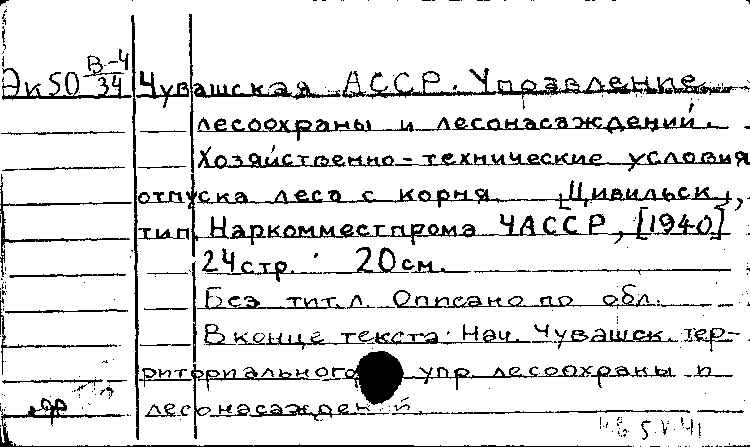 Эк50 В-4/34 Чувашская АССР. Управление
лесоохраны и лесонасаждений.
Хозяйственно-технические условия
отпуска леса с корня. [Цивильск],
тип. Наркомместпрома ЧАССР, [1940]
24стр. 20см.
Без тит.л. Описано по обл.
В конце текста: Нач. Чувашск. тер-
риториального упр. лесоохраны и
лесонасаждений.
5.V.41